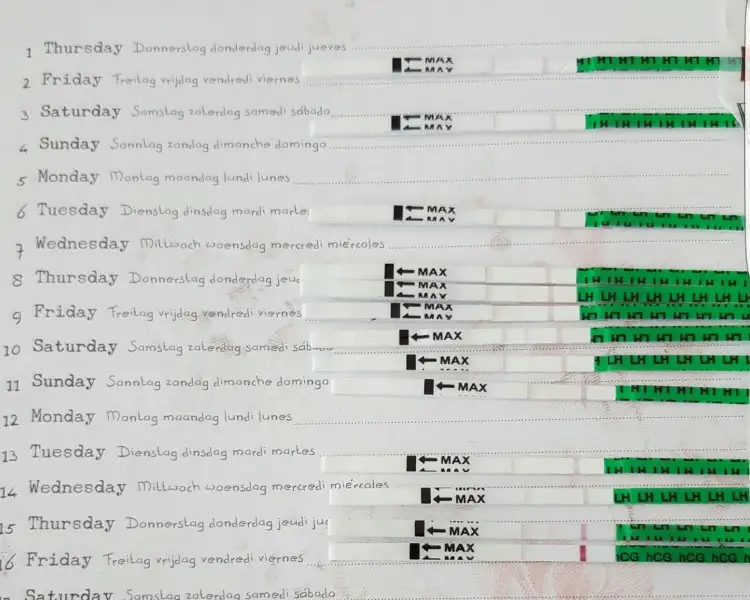 1 Thursday Donnerstag donderdag jeudi jueves
MAX
LH LH LH LH LH LH
2 Friday Freitag vrijdag vendredi viernes
3 Saturday Samstag zaterdag samedi sábado
MAX
MAX
LH LH LH LH LH LH LH
4 Sunday Sonntag zondag dimanche domingo
5 Monday Montag maandag lundi lunes
6 Tuesday Dienstag dinsdag mardi marte
MAX
LH LH LH LH LH LH
7 Wednesday Mittwoch woensdag mercredi miércoles
8 Thursday Donnerstag donderdag jeu
MAX
MAX
MAX
LH LH LH LH LH LH LH
9 Friday Freitag vrijdag vendredi viernes
MAX
MAX
LH LH LH LH LH LH
10 Saturday Samstag zaterdag samedi sáb
MAX
MAX
LH LH LH LH LH LH
11 Sunday Sonntag zondag dimanche domingo
MAX
LH LH LH LH LH
12 Monday Montag maandag lundi lunes
13 Tuesday Dienstag dinsdag mardi martes
MAX
LH LH LH LH LH LH
14 Wednesday Mittwoch woensdag mercredi miércoles
MAX
LH LH LH LH LH
15 Thursday Donnerstag donderdag jeudi jue
MAX
LH LH LH LH LH
16 Friday Freitag vrijdag vendredi viernes
MAX
hCG hCG hCG hCG
Saturday Samstag zaterdag samedi sábado